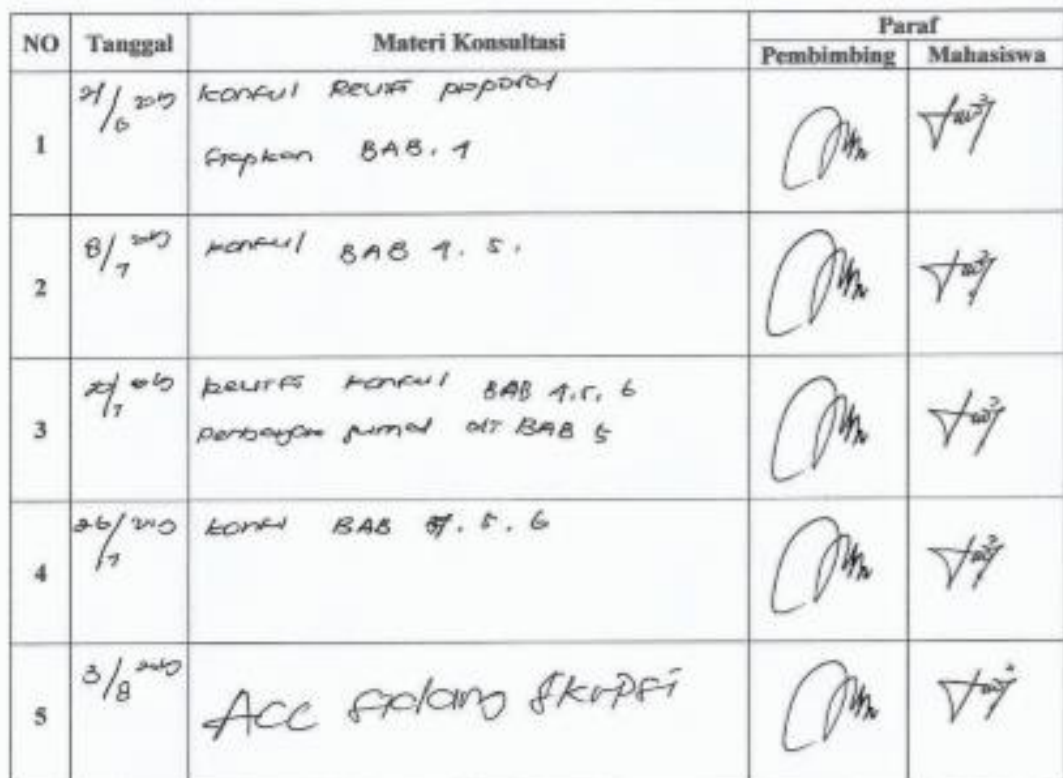 NO Tanggal Materi Konsultasi Paraf
Pembimbing Mahasiswa
1 21/6 2019 Konsul Revisi proposal
Siapkan BAB. 4
2 8/7 2019 Konsul BAB 4. 5.
3 /7 2019 Revisi Konsul BAB 4. 5. 6
jurnal BAB 5
4 26/7 2019 Konsul BAB 4. 5. 6
5 3/8 2019 ACC Sidang Skripsi